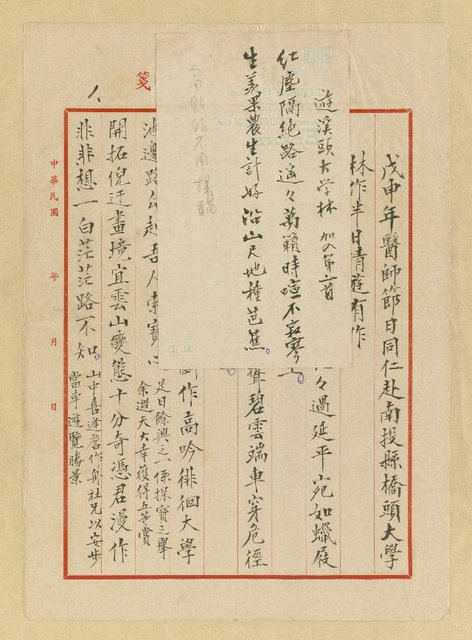 戊申年醫師節日同仁赴南投縣橋頭大學
林作半日清遊有作
遊溪頭大學林 加入第一首
紅塵隔絕路遙々萬籟時喧不寂寥
生羨果農生計好沿山尺地種芭蕉
上面貼紙不用
々過延平苑如蠟屐
聳碧雲端車穿危徑
作高吟徘徊大學
池邊路 赴吾人索寶
是日餘興之一係探寶之舉
余選天大幸獲得五等賞
開拓倪迂畫境宜雲山變態十分奇憑君漫作
非非想一白茫茫路不知
山中喜逢詹作舟社兄以安步
當車遊覽勝景
箋
中華民國 年 月 日